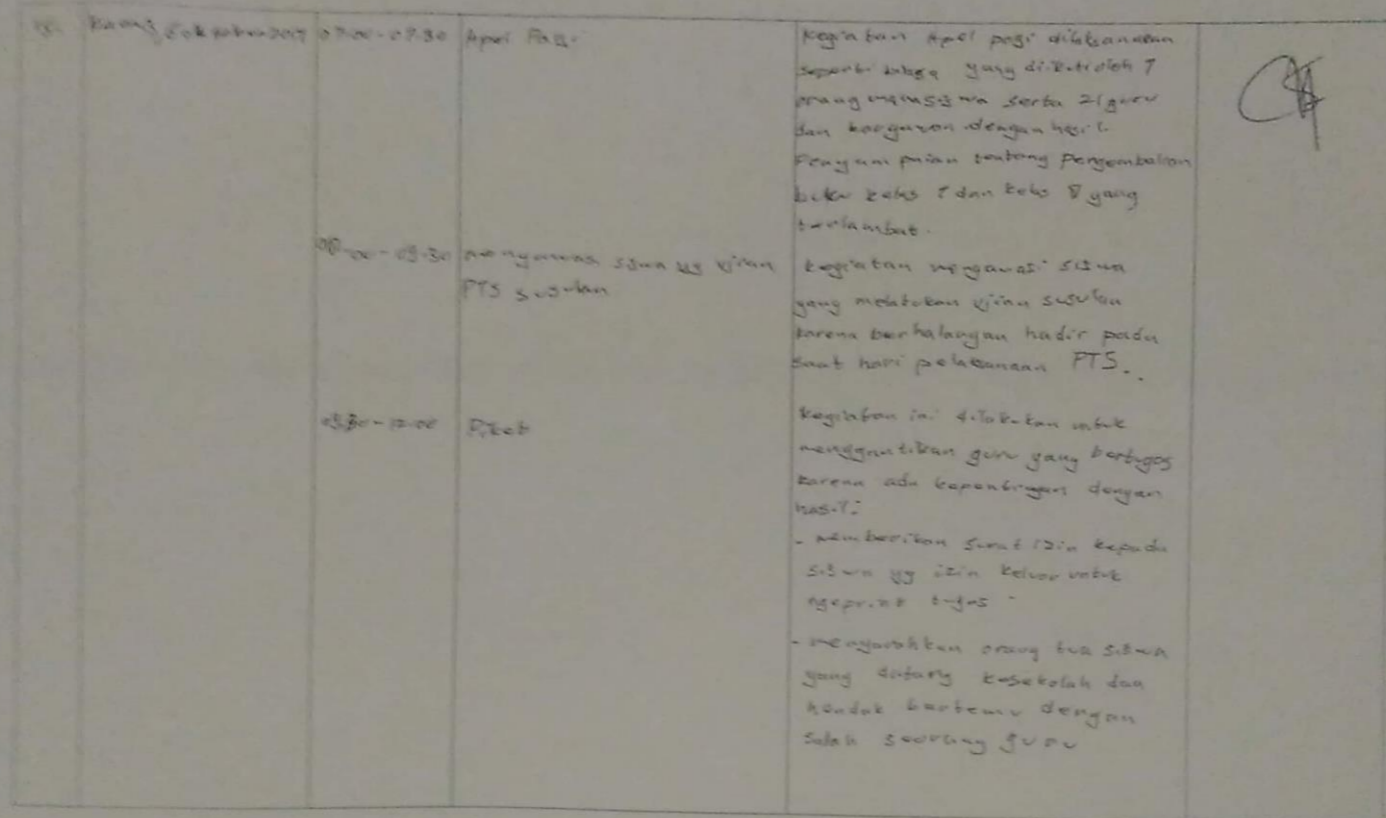 Kamis, 07.00 - 07.30 Apel Pagi
Kegiatan Apel pagi dilaksanakan
seperti yang di ikuti oleh 7
orang mahasiswa serta 21 guru
dan dengan hasil:
Penyampaian tentang pengembalian
buku kelas 7 dan kelas 8 yang
terlambat.
mengawasi siswa yg ujian
PTS susulan
kegiatan mengawasi siswa
yang melakukan ujian susulan
karena berhalangan hadir pada
saat hari pelaksanaan PTS.
Piket
kegiatan ini dilakukan untuk
menggantikan guru yang bertugas
karena ada kepentingan dengan
hasil:
- memberikan surat izin kepada
siswa yg izin keluar untuk
ngeprint tugas
- mengarahkan orang tua siswa
yang datang kesekolah dan
hendak bertemu dengan
salah seorang guru